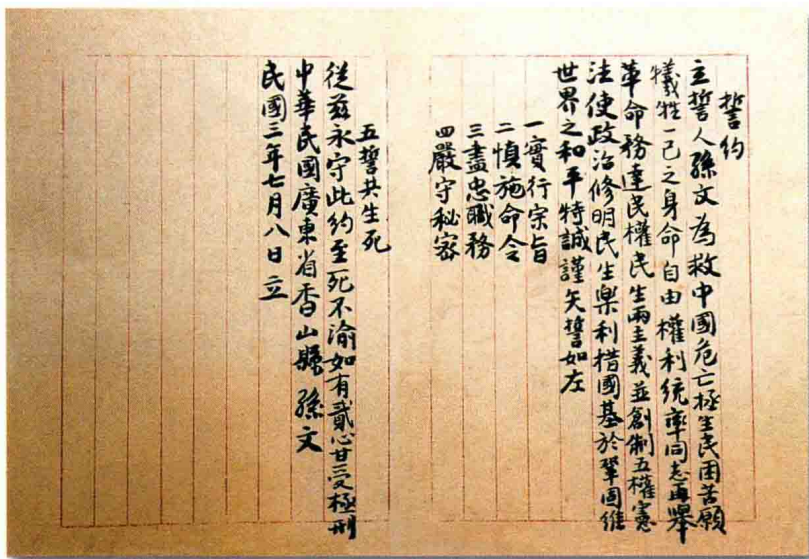 誓約
立誓人孫文為救中國危亡拯生民困苦願
犧牲一己之身命自由權利統率同志再舉
革命務達民權民生兩主義並創制五權憲
法使政治修明民生樂利措國基於鞏固維
世界之和平特誠謹矢誓如左
一實行宗旨
二慎施命令
三盡忠職務
四嚴守秘密
五誓共生死
從茲永守此約至死不渝如有貳心甘受極刑
中華民國廣東省香山縣 孫文
民國三年七月八日立